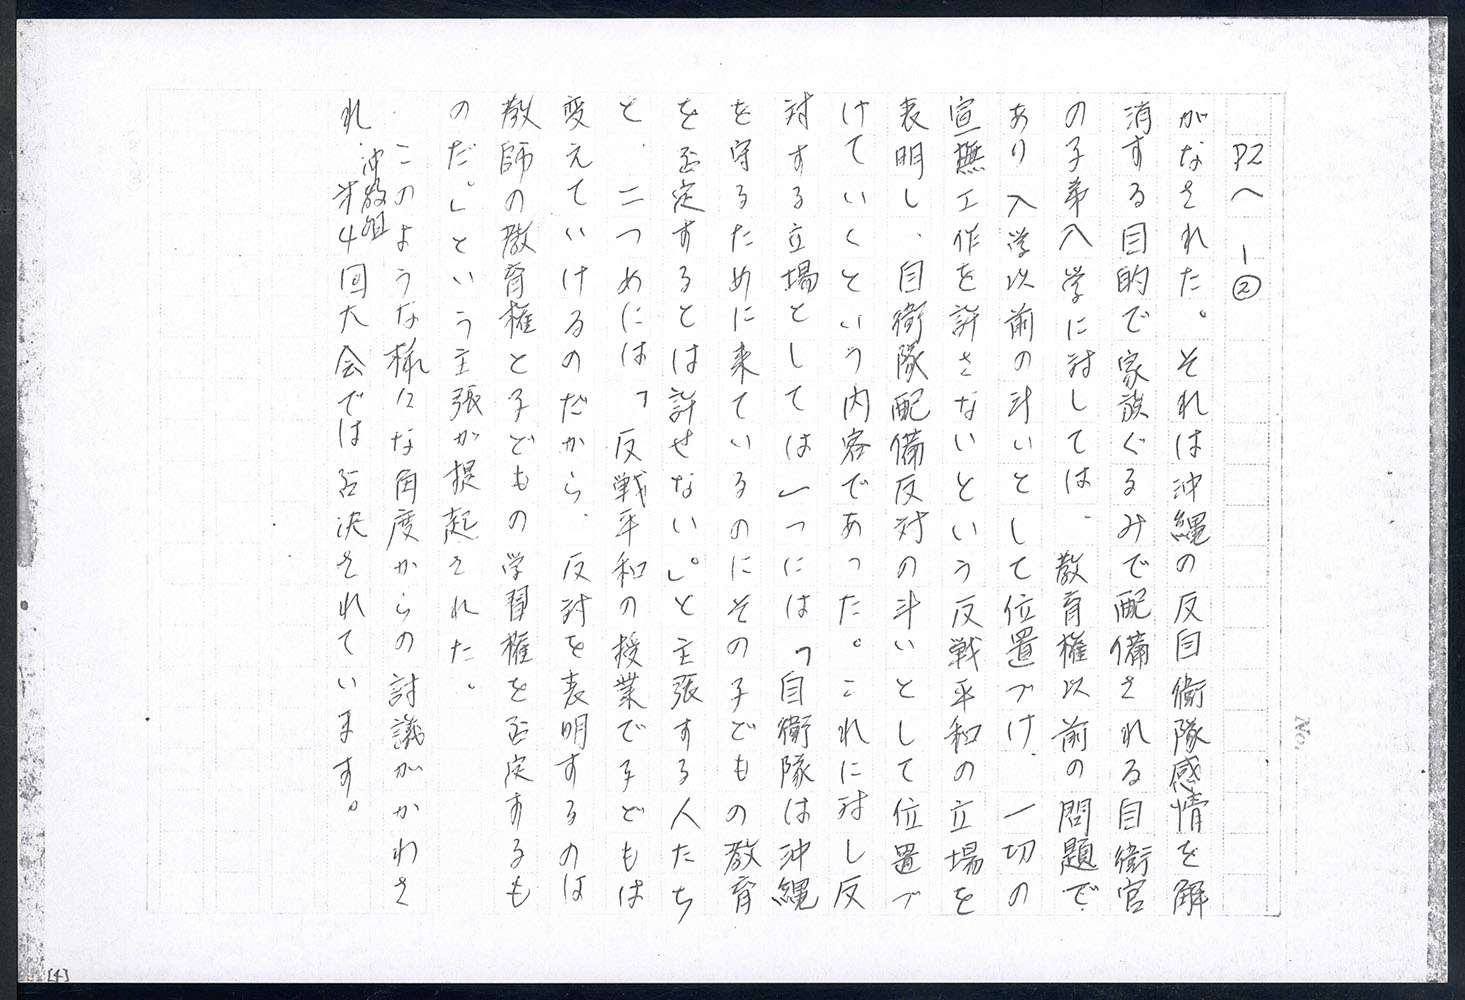 P2へ 1②
がなされた。それは沖縄の反自衛隊感情を解
消する目的で家族ぐるみで配備される自衛官
の子弟入学に対しては、教育権以前の問題で
あり入学以前の斗いとして位置づけ、一切の
宣撫工作を許さないという反戦平和の立場を
表明し、自衛隊配備反対の斗いとして位置づ
けていくという内容であった。これに対し反
対する立場としては一つには「自衛隊は沖縄
を守るために来ているのにその子どもの教育
を否定するとは許せない。」と主張する人たち
と、二つめには「反戦平和の授業で子どもは
変えていけるのだから、反対を表明するのは
教師の教育権と子どもの学習権を否定するも
のだ。」という主張が提起された。
このような様々な角度からの討議がかわさ
れ、沖教組
第4回大会では否決されています。
No.
[4]